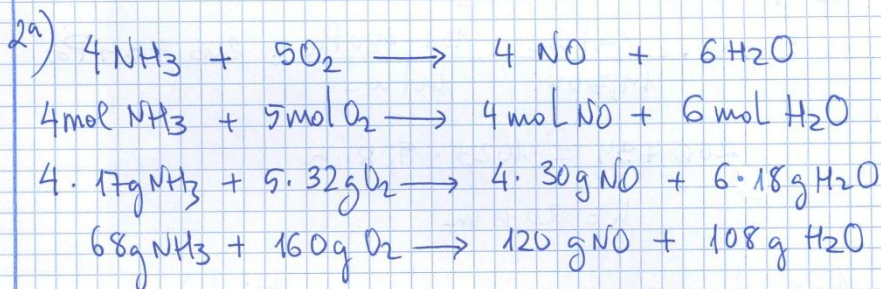 2a) 4 NH3 + 5O2 → 4 NO + 6 H2O
4mol NH3 + 5mol O2 → 4 mol NO + 6 mol H2O
4 · 17g NH3 + 5 · 32g O2 → 4 · 30g NO + 6 · 18g H2O
68g NH3 + 160g O2 → 120 g NO + 108 g H2O